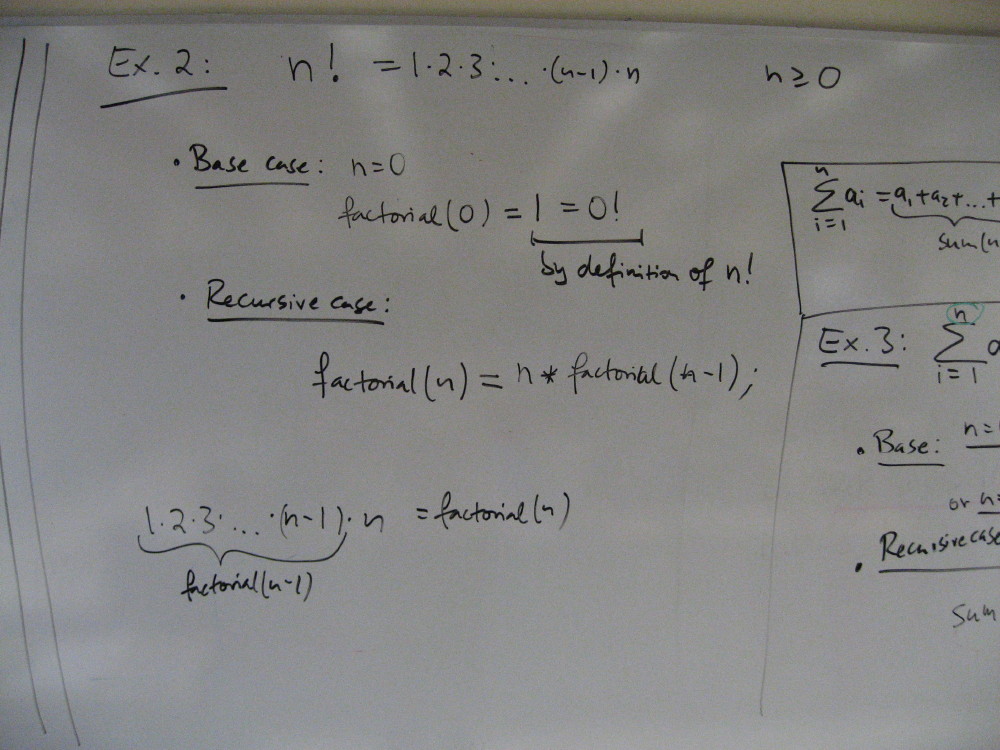 Ex. 2: n! = 1·2·3·...·(n-1)·n n ≥ 0
• Base case: n=0
factorial(0) = 1 = 0!
by definition of n!
• Recursive case:
factorial(n) = n * factorial(n-1);
1·2·3·...·(n-1)·n = factorial(n)
factorial(n-1)
n
∑ ai = a1+a2+...+
i=1
sum(n
Ex. 3: n
∑
i=1
• Base: n=
or n=
• Recursive case
Sum